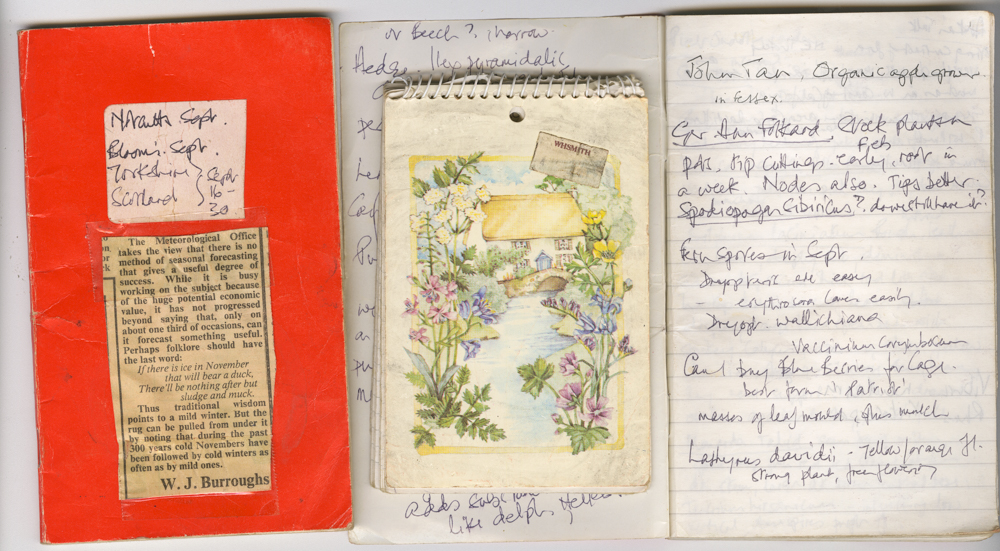 N. Ireland Sept.
Bloom's Sept.
Yorkshire
Scotland
Sept
16 -
30.
The Meteorological Office
takes the view that there is no
method of seasonal forecasting
that gives a useful degree of
success. While it is busy
working on the subject because
of the huge potential economic
value, it has not progressed
beyond saying that, only on
about one third of occasions, can
it forecast something useful.
Perhaps folklore should have
the last word:
If there is ice in November
that will bear a duck,
There'll be nothing after but
sludge and muck.
Thus traditional wisdom
points to a mild winter. But the
rug can be pulled from under it
by noting that during the past
300 years cold Novembers have
been followed by cold winters as
often as by mild ones.
W. J. Burroughs
or Beech?
Hedge Ilex pyramidalis,
WHSMITH
like delphs
John Tan, Organic apple grower
in Essex.
Ger. Ann Folkard, Stock plants in
pots, tip cuttings. early Feb, root in
a week. Nodes also. Tips better.
Spodiopogon Sibiricus? do we still have it?
Fern Spores in Sept.
are easy
- erythrosora comes easily.
Dryopt. wallichiana
Vaccinium Corymbosum
Cand buy Blue Berries for Cage.
best form 'Patriot'
masses of leaf mould, plus mulch
Lathyrus davidii - Yellow/orange fl.
strong plant, free flowering